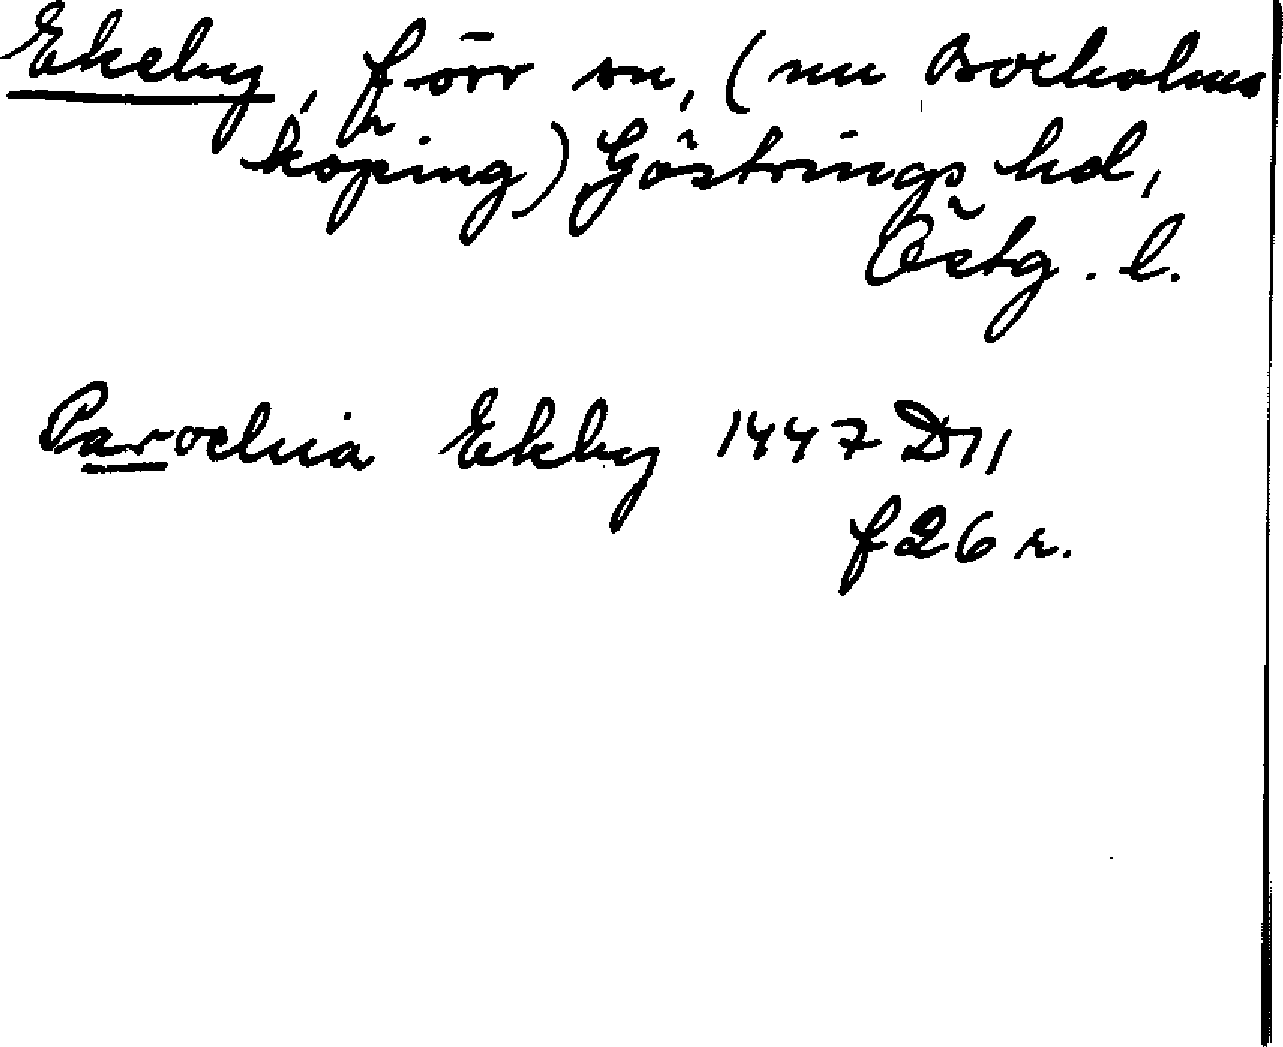 Ekeby, förr sn, (nu Boxholms
köping) Göstrings hd,
Östg. l.
Parochia Ekby 1447 D11
f 26 r.